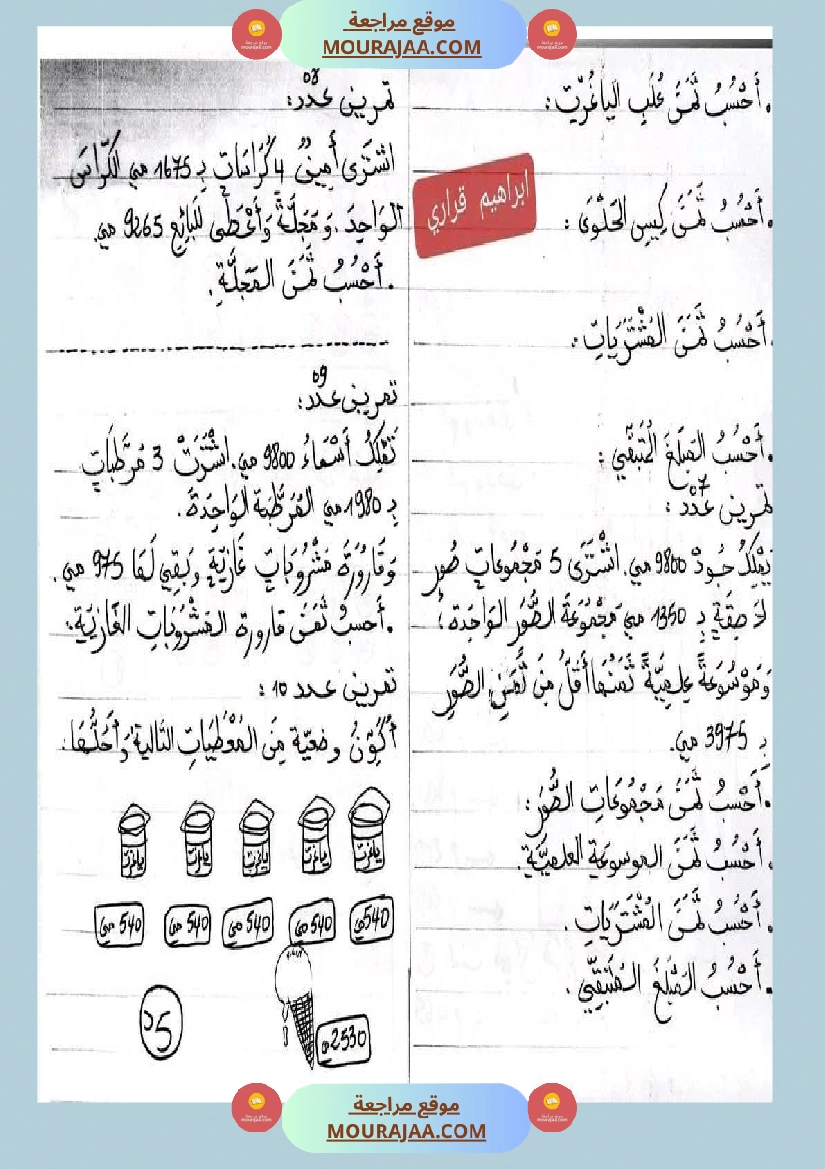 موقع مراجعة
MOURAJAA.COM
. أَحْسُبُ ثَمَنَ عُلَبِ اليَاغُرْتِ :
. أَحْسُبُ ثَمَنَ كِيسِ الحَلْوَى :
ابراهيم قراري
. أَحْسُبُ ثَمَنَ المُشْتَرَيَاتِ :
. أَحْسُبُ المَبْلَغَ المُتَبَقِّي :
تمرين عدد 07 :
يَمْلِكُ جُودْ 9800 مي. اشْتَرَى 5 مَجْمُوعَاتِ صُور
لاَصِقَةٍ بِـ 1350 مي مَجْمُوعَةُ الصُّوَرِ الوَاحِدَة ؛
وَمَوْسُوعَةً عِلْمِيَّةً ثَمَنُهَا أَقَلُّ مِنْ ثَمَنِ الصُّوَرِ
بِـ 3975 مي.
. أَحْسُبُ ثَمَنَ مَجْمُوعَاتِ الصُّوَرِ :
. أَحْسُبُ ثَمَنَ الموسوعَةِ العلميَّةِ.
. أَحْسُبُ ثَمَنَ المُشْتَرَيَاتِ .
. أَحْسُبُ المَبْلَغَ المُتَبَقِّي .
تمرين عدد 08 :
اشْتَرَى أَمِينٌ 4 كُرَّاسَاتٍ بِـ 1675 مي الكُرَّاسَ
الوَاحِدَ . وَ مَجَلَّةً وَ أَعْطَى لِلْبَائِعِ 9265 مي.
. أَحْسُبُ ثَمَنَ المَجَلَّةِ .
تمرين عدد 09 :
تَمْلِكُ أَسْمَاءُ 9800 مي. اشْتَرَتْ 3 مُرَطَّبَاتٍ
بِـ 1980 مي المُرَطَّبَة الوَاحِدَةُ .
وَقَارُورَةَ مَشْرُوبَاتٍ غَازِيَّةٍ وَبَقِيَ لَهَا 975 مي .
. أَحسبُ ثَمَنَ قارورة المَشْرُوبَاتِ الغَازِيَّةِ :
تمرين عدد 10 :
أُكَوِّنُ وضعيّة مِنَ المُعْطَيَاتِ التَّاليةِ وَ أَحُلُّهَا :
ياغرت ياغرت ياغرت ياغرت ياغرت
540 مي 540 مي 540 مي 540 مي 540 مي
5د
2530 مي
موقع مراجعة
MOURAJAA.COM